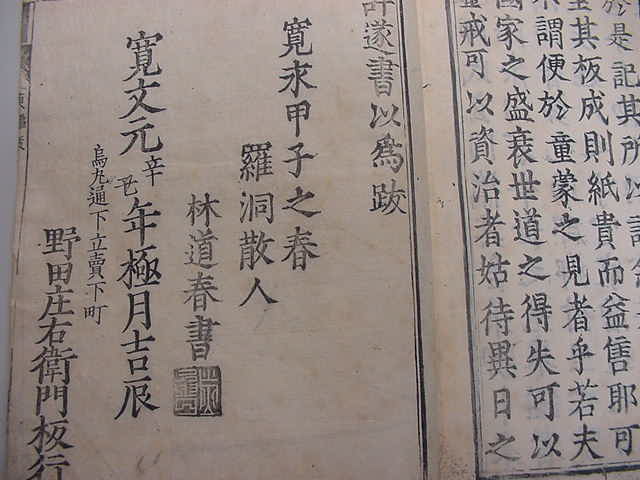 於是記其所以
其板成則紙貴而益售耶可
謂便於童蒙之見者乎若夫
國家之盛衰世道之得失可以
戒可以資治者姑待異日之
評遂書以為跋
寬永甲子之春
羅洞散人
林道春書
寬文元辛丑年極月吉辰
烏丸通下立賣下町
野田庄右衛門板行